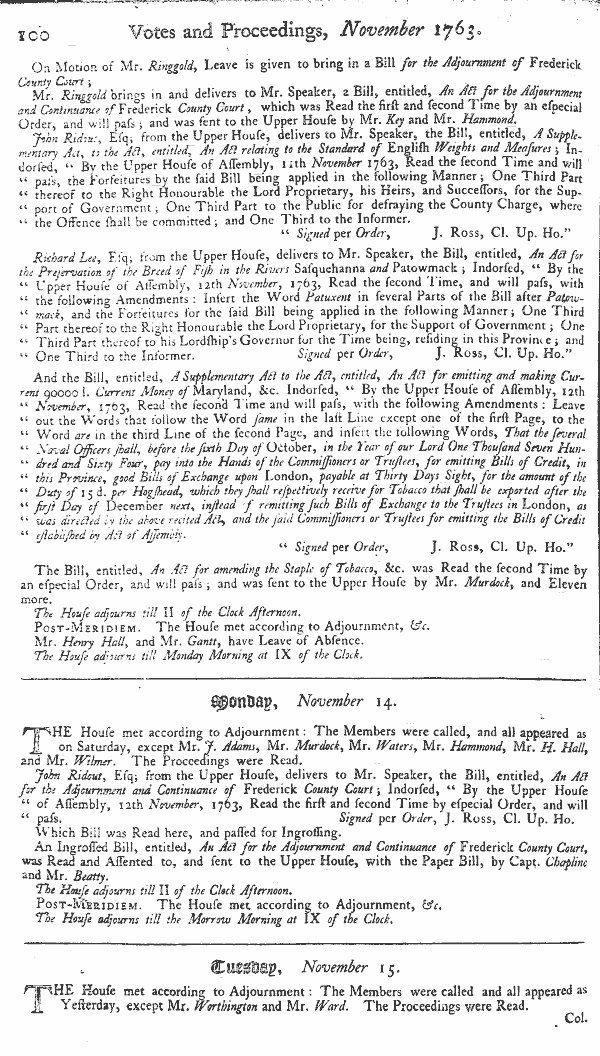 100 Votes and Proceedings, November 1763.
On Motion of Mr. Ringgold, Leave is given to bring in a Bill for the Adjournment of Frederick
County Court;
Mr. Ringgold brings in and delivers to Mr. Speaker, a Bill, entitled, An Act for the Adjournment
and Continuance of Frederick County Court, which was Read the firſt and ſecond Time by an eſpecial
Order, and will paſs; and was ſent to the Upper Houſe by Mr. Key and Mr. Hammond.
John Ridout, Eſq; from the Upper Houſe, delivers to Mr. Speaker, the Bill, entitled, A Supple-
mentary Act, to the Act, entitled, An Act relating to the Standard of Engliſh Weights and Meaſures; In-
dorſed, “ By the Upper Houſe of Aſſembly, 11th November 1763, Read the ſecond Time and will
“ paſs, the Forfeitures by the ſaid Bill being applied in the following Manner; One Third Part
“ thereof to the Right Honourable the Lord Proprietary, his Heirs, and Succeſſors, for the Sup-
“ port of Government; One Third Part to the Public for defraying the County Charge, where
“ the Offence ſhall be committed; and One Third to the Informer.
“ Signed per Order, J. Ross, Cl. Up. Ho.”
Richard Lee, Eſq; from the Upper Houſe, delivers to Mr. Speaker, the Bill, entitled, An Act for
the Preſervation of the Breed of Fiſh in the Rivers Saſquehanna and Patowmack; Indorſed, “ By the
“ Upper Houſe of Aſſembly, 12th November, 1763, Read the ſecond Time, and will paſs, with
“ the following Amendments: Inſert the Word Patuxent in ſeveral Parts of the Bill after Patow-
“ mack, and the Forfeitures for the ſaid Bill being applied in the following Manner; One Third
“ Part thereof to the Right Honourable the Lord Proprietary, for the Support of Government; One
“ Third Part thereof to his Lordſhip's Governor for the Time being, reſiding in this Province; and
“ One Third to the Informer. Signed per Order, J. Ross, Cl. Up. Ho.”
And the Bill, entitled, A Supplementary Act to the Act, entitled, An Act for emitting and making Cur-
rent 90000 l. Current Money of Maryland, &c. Indorſed, “ By the Upper Houſe of Aſſembly, 12th
“ November, 1763, Read the ſecond Time and will paſs, with the following Amendments: Leave
“ out the Words that follow the Word ſame in the laſt Line except one of the firſt Page, to the
“ Word are in the third Line of the ſecond Page, and inſert the following Words, That the ſeveral
“ Naval Officers ſhall, before the ſixth Day of October, in the Year of our Lord One Thouſand Seven Hun-
“ dred and Sixty Four, pay into the Hands of the Commiſſioners or Truſtees, for emitting Bills of Credit, in
“ this Province, good Bills of Exchange upon London, payable at Thirty Days Sight, for the amount of the
“ Duty of 15 d. per Hogſhead, which they ſhall reſpectively receive for Tobacco that ſhall be exported after the
“ firſt Day of December next, inſtead of remitting ſuch Bills of Exchange to the Truſtees in London, as
“ was directed by the above recited Act, and the ſaid Commiſſioners or Truſtees for emitting the Bills of Credit
“ eſtabliſhed by Act of Aſſembly.
“ Signed per Order, J. Ross, Cl. Up. Ho.”
The Bill, entitled, An Act for amending the Staple of Tobacco, &c. was Read the ſecond Time by
an eſpecial Order, and will paſs; and was ſent to the Upper Houſe by Mr. Murdock, and Eleven
more.
The Houſe adjourns till II of the Clock Afternoon.
Post-Meridiem. The Houſe met according to Adjournment, &c.
Mr. Henry Hall, and Mr. Gantt, have Leave of Abſence.
The Houſe adjourns till Monday Morning at IX of the Clock.
Monday, November 14.
THE Houſe met according to Adjournment: The Members were called, and all appeared as
on Saturday, except Mr. J. Adams, Mr. Murdock, Mr. Waters, Mr. Hammond, Mr. H. Hall,
and Mr. Wilmer. The Proceedings were Read.
John Ridout, Eſq; from the Upper Houſe, delivers to Mr. Speaker, the Bill, entitled, An Act
for the Adjournment and Continuance of Frederick County Court; Indorſed, “ By the Upper Houſe
“ of Aſſembly, 12th November, 1763, Read the firſt and ſecond Time by eſpecial Order, and will
“ paſs. Signed per Order, J. Ross, Cl. Up. Ho.
Which Bill was Read here, and paſſed for Ingroſſing.
An Ingroſſed Bill, entitled, An Act for the Adjournment and Continuance of Frederick County Court,
was Read and Aſſented to, and ſent to the Upper Houſe, with the Paper Bill, by Capt. Chapline
and Mr. Beatty.
The Houſe adjourns till II of the Clock Afternoon.
Post-Meridiem. The Houſe met according to Adjournment, &c.
The Houſe adjourns till the Morrow Morning at IX of the Clock.
Tuesday, November 15.
THE Houſe met according to Adjournment: The Members were called and all appeared as
Yeſterday, except Mr. Worthington and Mr. Ward. The Proceedings were Read.
Col.